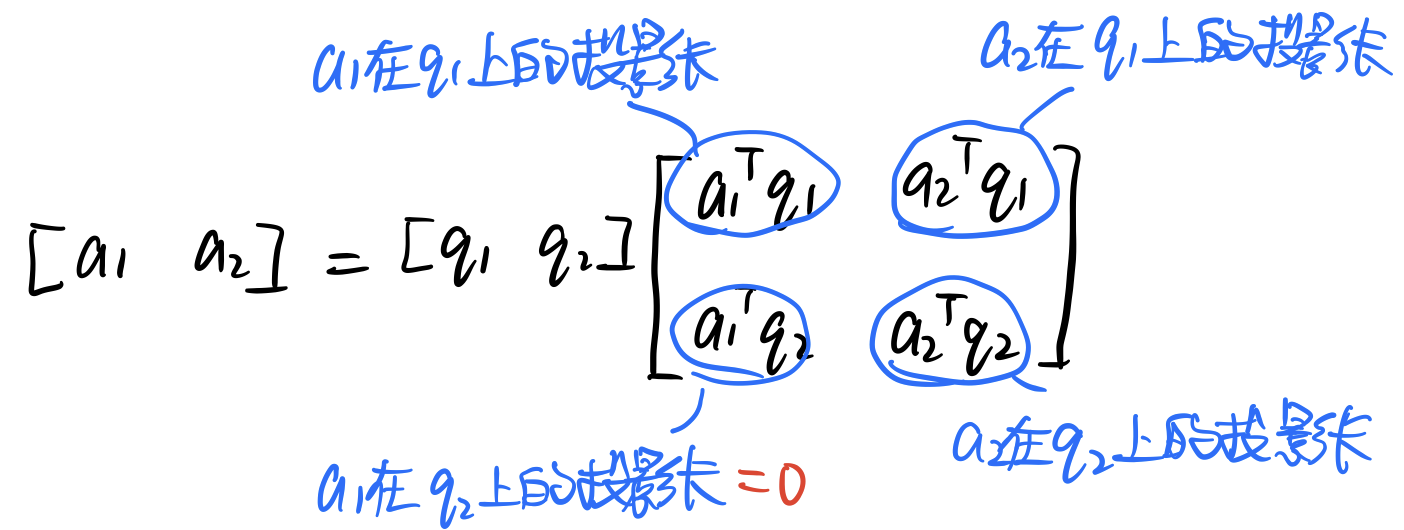 a1在q1上的投影长
a2在q1上的投影长
[a1 a2] = [q1 q2] [a1ᵀq1 a2ᵀq1
a1ᵀq2 a2ᵀq2]
a2在q2上的投影长
a1在q2上的投影长=0